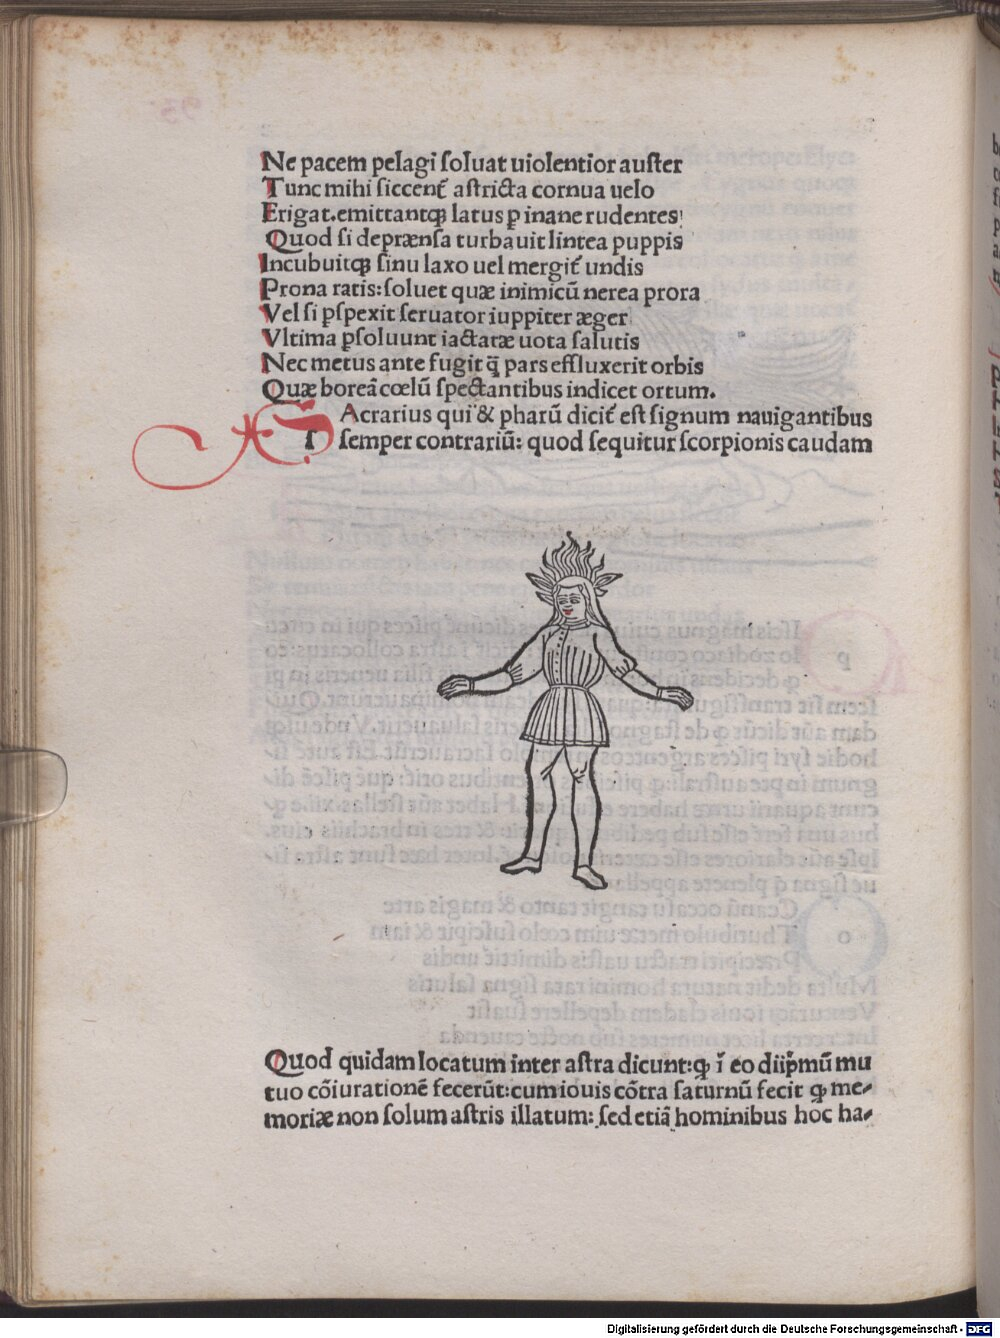 Ne pacem pelagi ſoluat uiolentior auſter
Tunc mihi ſiccent᷑ aſtricta cornua uelo
Erigat.emittantqꝫ latus ꝑ inane rudentes
Quod ſi deprænſa turbauit lintea puppis
Incubuitqꝫ ſinu laxo uel mergit᷑ undis
Prona ratis:ſoluet quæ inimicū nerea prora
Vel ſi ꝑſpexit ſeruator iuppiter æger
Vltima ꝑſoluunt iactatæ uota ſalutis
Nec metus ante fugit q̄ pars effluxerit orbis
Quæ boreā cœlū ſpectantibus indicet ortum.
S Acrarius qui & pharū dicit᷑ eſt ſignum nauigantibus
ſ ſemper contrariū: quod ſequitur ſcorpionis caudam
Quod quidam locatum inter aſtra dicunt:ꝙ ī eo dii pͥmū mu
tuo cōiurationē fecerūt:cum iouis cōtra ſaturnū fecit ꝙ me-
moriæ non ſolum aſtris illatum: ſed etiā hominibus hoc ha-
Digitalisierung gefördert durch die Deutsche Forschungsgemeinschaft - DFG